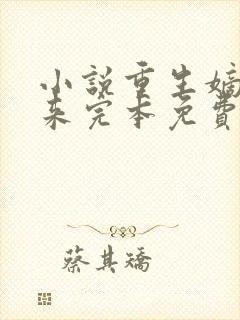 小说重生嫡
来完本免費
蔡其矯